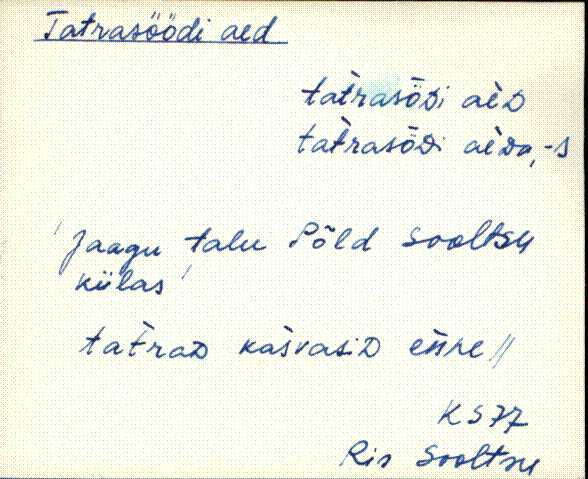 Tatrasöödi aed
tàtrasö̀Di aèD
tàtrasö̀Di aèDa, -s
'Jaagu talu põld Sooltsu
külas'
tàtraD kàsvasiD ènne //
KS77
Ris Sooltsu